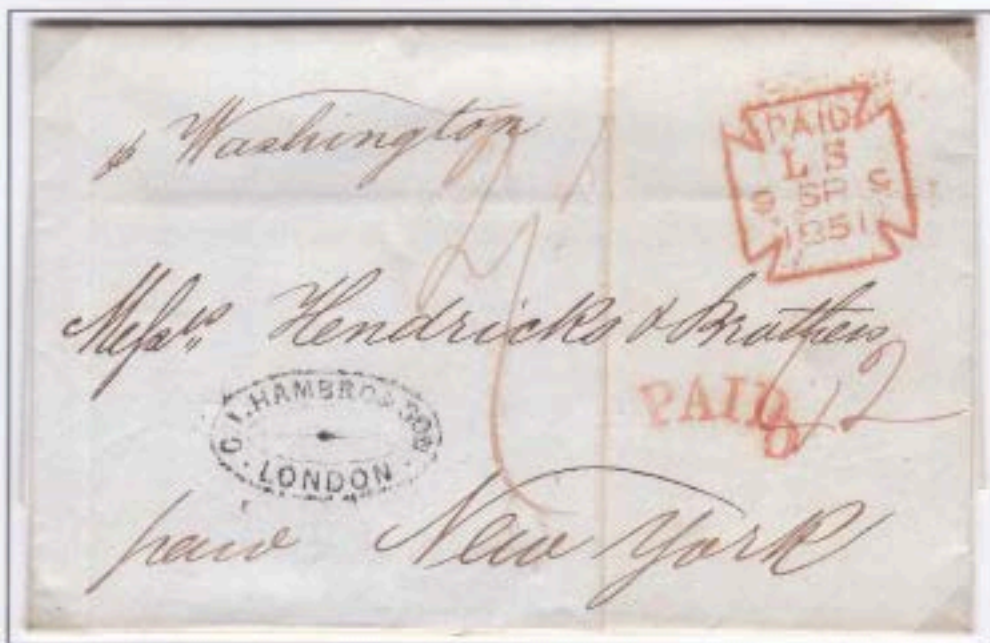 p Washington
PAID
LS
9 SP 9
1851
Messrs Hendricks & Brothers
C. J. HAMBRO & SON
LONDON
PAID
8
/2
paid New York